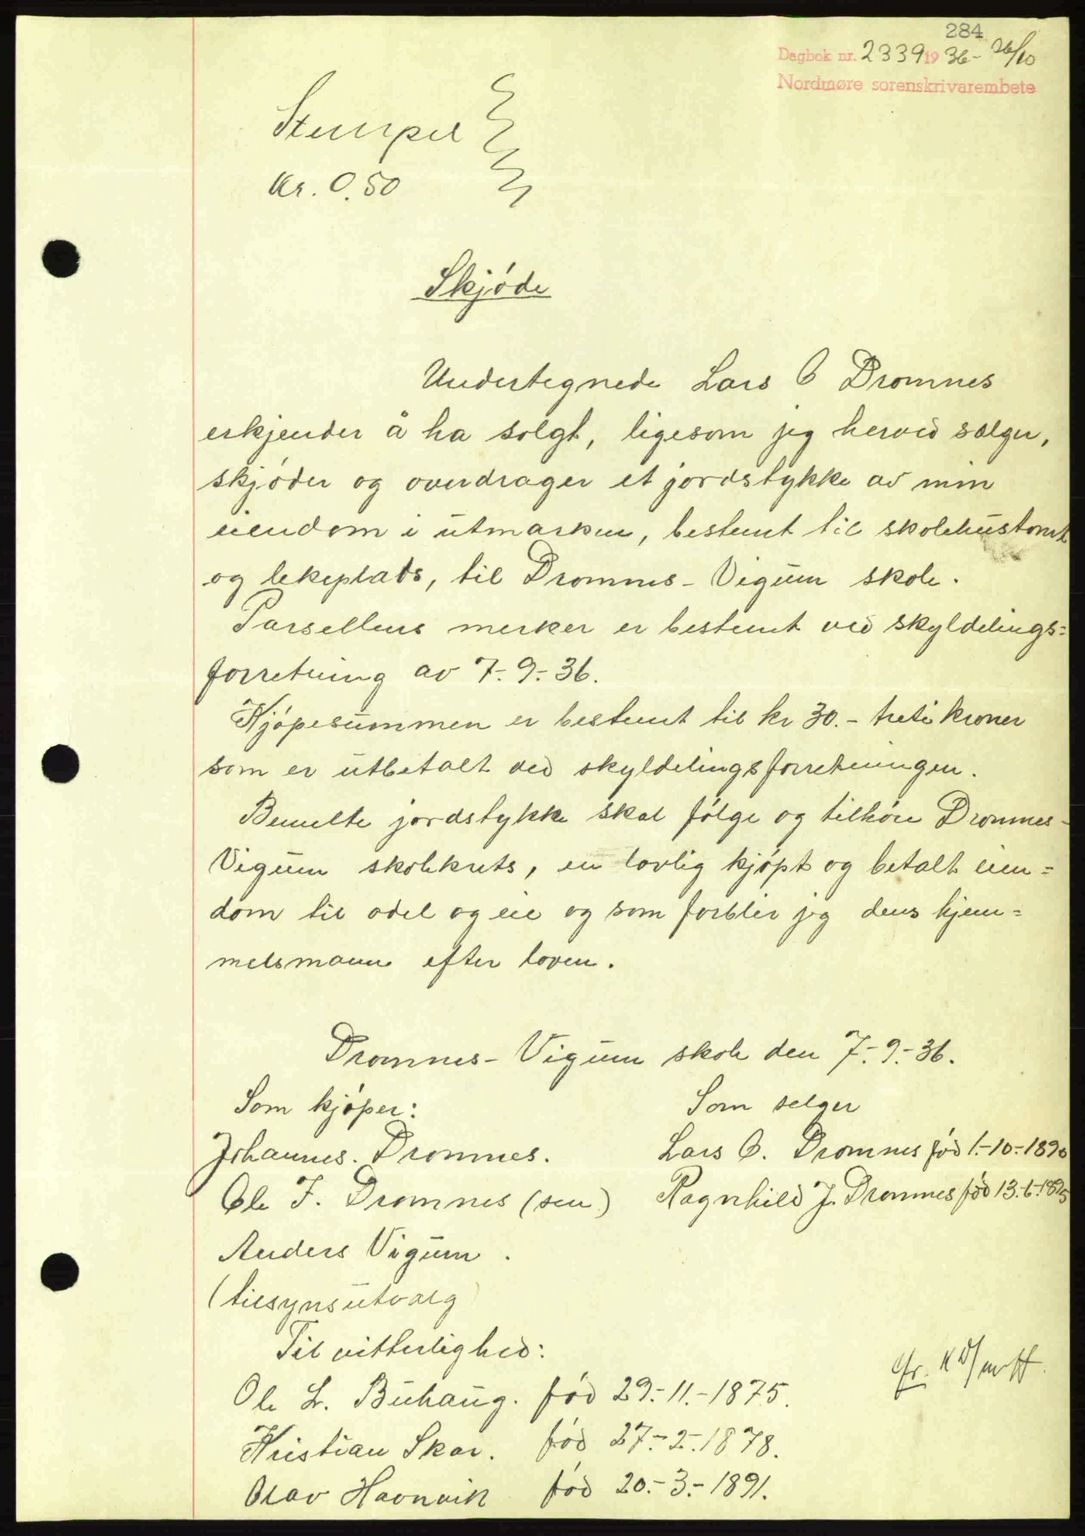 284
Dagbok nr. 2339 1936 - 26/10
Nordmøre sorenskrivarembete
Stempel
Kr. 0.50
Skjøde
Undertegnede Lars O Dromnes
erkjender å ha solgt, ligesom jeg herved sælger,
skjøder og overdrager et jordstykke av min
eiendom i utmarken, bestemt til skolehustomt
og lekeplads, til Dromnes - Vigum skole.
Parsellens merker er bestemt ved skyldelings=
forretning av 7.- 9.- 36.
Kjøpesummen er bestemt til kr 30.- treti kroner
som er utbetalt ved skyldelingsforretningen.
Bemelte jordstykke skal følge og tilhøre Dromnes-
Vigum skolekrets, en lovlig kjøpt og betalt eien=
dom til odel og eie og som forblir jeg dens hjem=
melsmann efter loven.
Dromnes - Vigum skole den 7.- 9.- 36.
Som kjøper: Som selger
Johannes. Dromnes. Lars O. Dromnes fød 1.-10.-1890
Ole J. Dromnes (sen) Ragnhild J. Dromnes fød 13.-6.-1895
Anders Vigum.
(tilsynsutvalg
Til vitterlighed:
Ole L. Buhaug. fød 29.-11.-1875.
Kristian Skar. fød 27.-2.-1878.
Olav Havnvik fød 20.-3.-1891.